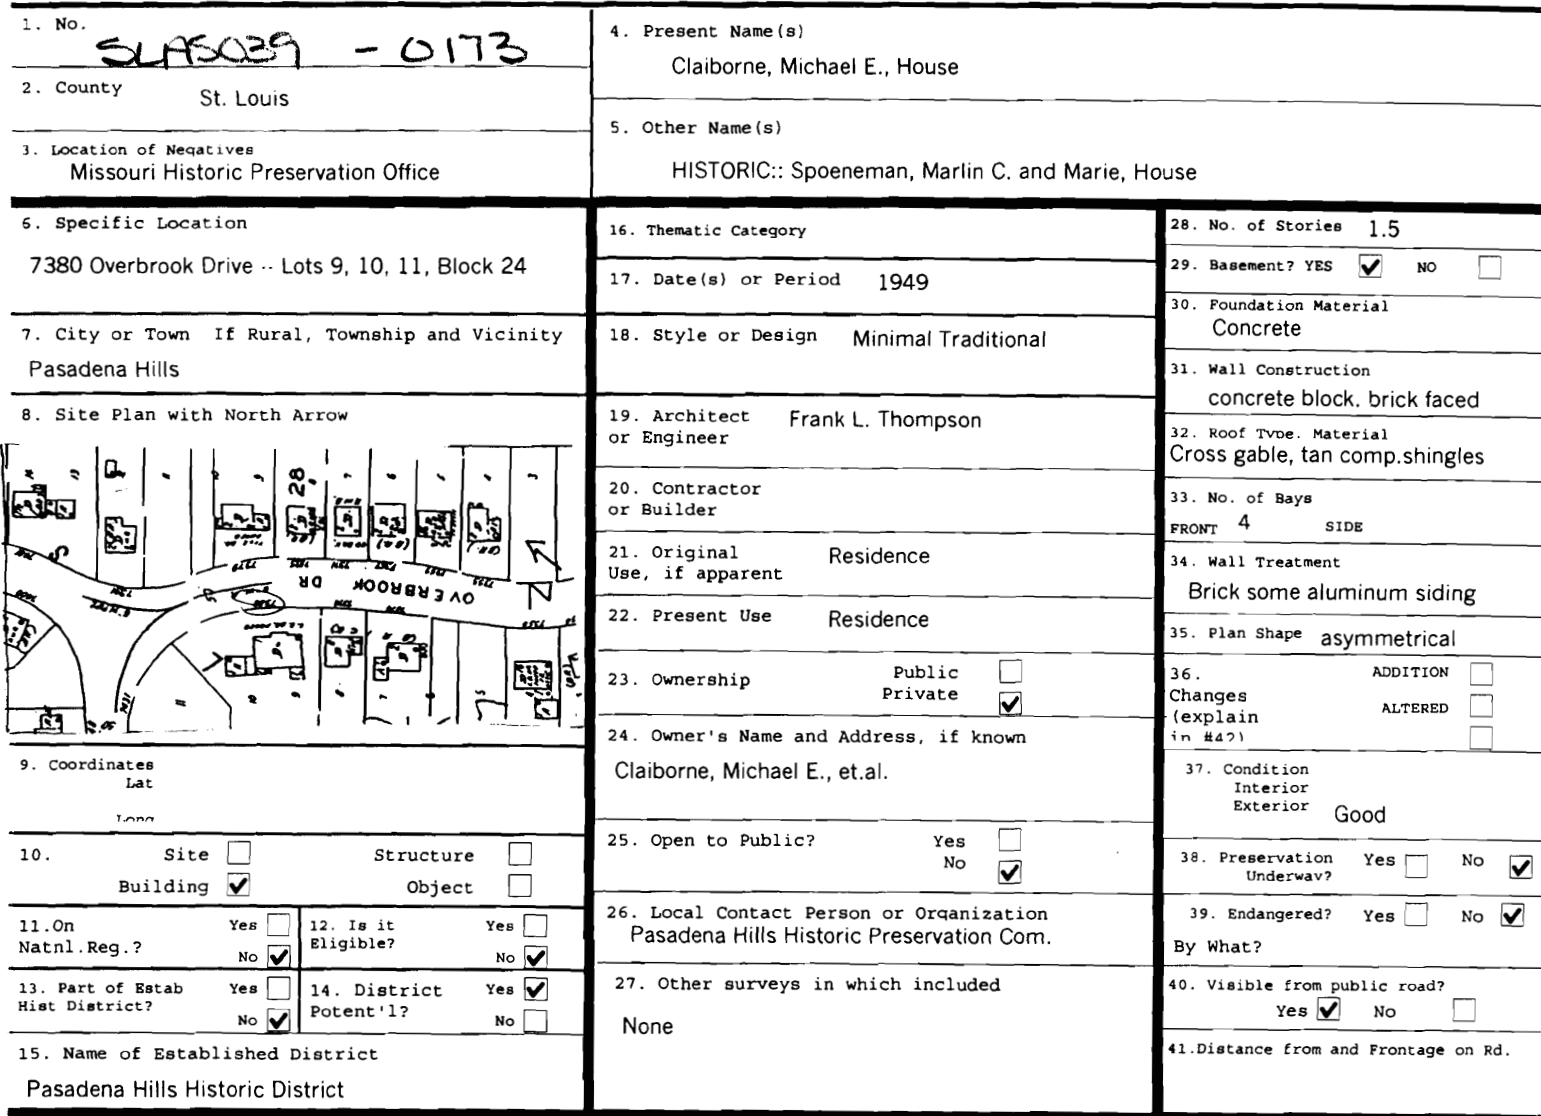 1. No.
SLAS039 - 0173
2. County
St. Louis
3. Location of Negatives
Missouri Historic Preservation Office
4. Present Name(s)
Claiborne, Michael E., House
5. Other Name(s)
HISTORIC:: Spoeneman, Marlin C. and Marie, House
6. Specific Location
7380 Overbrook Drive -- Lots 9, 10, 11, Block 24
7. City or Town If Rural, Township and Vicinity
Pasadena Hills
8. Site Plan with North Arrow
28
OVERBROOK DR
N
9. Coordinates
Lat
Long
10. Site Structure
Building Object
11.On Yes
Natnl.Reg.? No
12. Is it Yes
Eligible? No
13. Part of Estab Yes
Hist District? No
14. District Yes
Potent'l? No
15. Name of Established District
Pasadena Hills Historic District
16. Thematic Category
17. Date(s) or Period 1949
18. Style or Design Minimal Traditional
19. Architect Frank L. Thompson
or Engineer
20. Contractor
or Builder
21. Original Residence
Use, if apparent
22. Present Use Residence
23. Ownership Public
Private
24. Owner's Name and Address, if known
Claiborne, Michael E., et.al.
25. Open to Public? Yes
No
26. Local Contact Person or Organization
Pasadena Hills Historic Preservation Com.
27. Other surveys in which included
None
28. No. of Stories 1.5
29. Basement? YES NO
30. Foundation Material
Concrete
31. Wall Construction
concrete block. brick faced
32. Roof Type. Material
Cross gable, tan comp.shingles
33. No. of Bays
FRONT 4 SIDE
34. Wall Treatment
Brick some aluminum siding
35. Plan Shape asymmetrical
36. ADDITION
Changes
(explain ALTERED
in #42)
37. Condition
Interior
Exterior Good
38. Preservation Yes No
Underway?
39. Endangered? Yes No
By What?
40. Visible from public road?
Yes No
41.Distance from and Frontage on Rd.